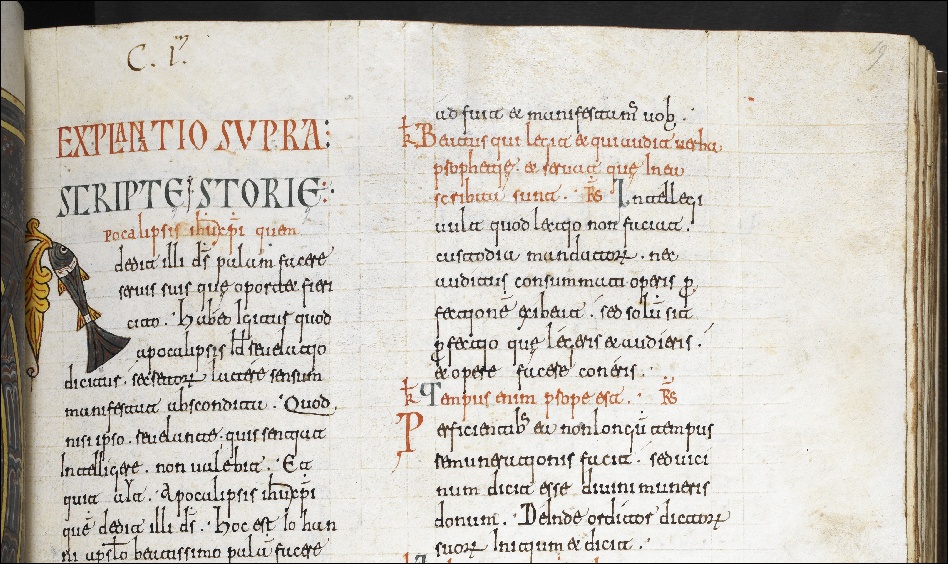 C. Im
19
EXPLANATIO SUPRA:
SCRIPTE ISTORIE:
Apocalipsis ihu xpi quem
dedit illi ds palam facere
servis suis que oportet fieri
cito. Habeo igitur quod
apocalipsis id revelatjo
dicitur. secretorum latere sensum
manifestat abscondita. Quod
nisi ipso revelante. quis sentjat
Intelligere. non valebit. Et
quia ait. Apocalipsis ihu xpi
que dedit illi ds. Hoc est Iohan
ni apslo beatissimo palam facere
ad fuit et manifestatur vob.
Beatus qui legit et qui audit verba
prophetie. et servat que In ea
scribta sunt. Rs Intellegi
vult quod lectjo non faciat.
custodia mandatorum. nec
auditus consummati operis per
fectjonem exibeat. sed solum sit
perfectjo que legeris et audieris.
et opere facere coneris.
Tempus enim prope est. Rs
Perficientibus ea non longum tempus
remuneratjonis facit. sed vici
num dicit esse divini muneris
donum. Deinde ordictor dictorum
suorum Initjum et dicit.